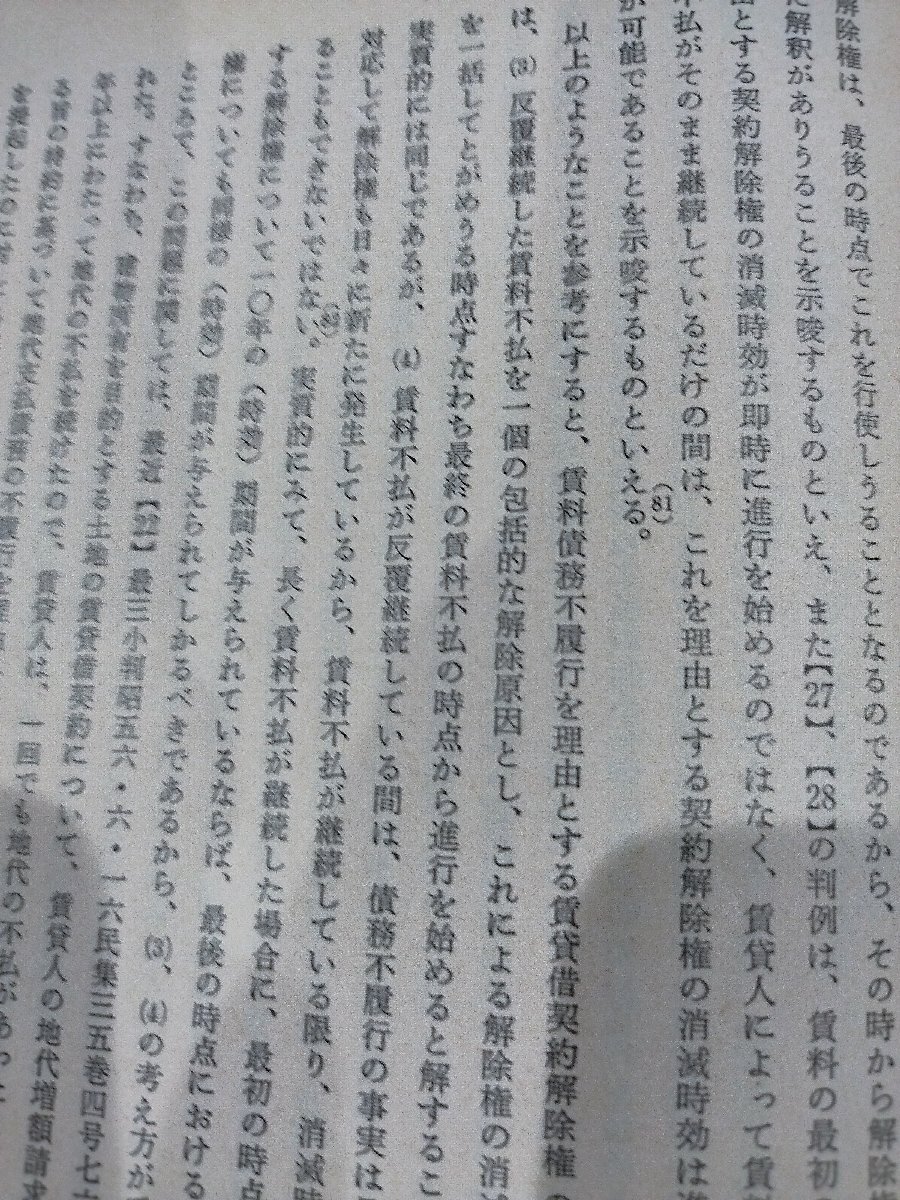 解除権は、最後の時点でこれを行使しうることとなるのであるから、その時から解除
解釈がありうることを示唆するものといえ、また【27】、【28】の判例は、賃料の最初
とする契約解除権の消滅時効が即時に進行を始めるのではなく、賃貸人によって賃
不払がそのまま継続しているだけの間は、これを理由とする契約解除権の消滅時効は
が可能であることを示唆するものといえる。(81)
以上のようなことを参考にすると、賃料債務不履行を理由とする賃貸借契約解除権の
は、(3)反覆継続した賃料不払を一個の包括的な解除原因とし、これによる解除権の消
を一括してとがめうる時点すなわち最終の賃料不払の時点から進行を始めると解するこ
実質的には同じであるが、(4)賃料不払が反覆継続している間は、債務不履行の事実は
対応して解除権も日々に新たに発生しているから、賃料不払が継続している限り、消滅時
ることもできないではない。(82)実質的にみて、長く賃料不払が継続した場合に、最初の時点
する解除権について一〇年の(時効)期間が与えられているならば、最後の時点における
権についても同様の(時効)期間が与えられてしかるべきであるから、(3)、(4)の考え方が
ところで、この問題に関しては、最近【22】最三小判昭五六・六・一六民集三五巻四号七
れた。すなわち、建物所有を目的とする土地の賃貸借契約について、賃貸人の地代増額請求
年以上にわたって地代の不払を続けたので、賃貸人は、一回でも地代の不払があっ
る旨の特約に基づいて地代支払債務の不履行を